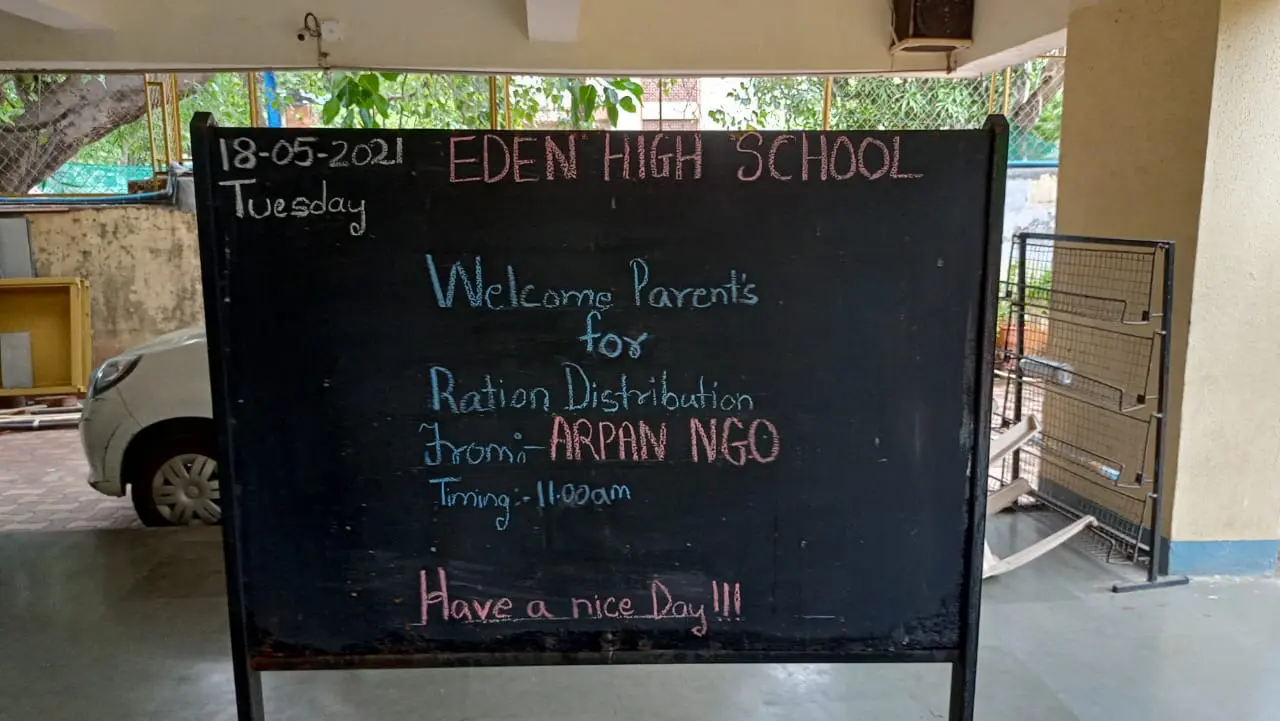 18-05-2021 EDEN HIGH SCHOOL
Tuesday
Welcome Parent's
for
Ration Distribution
From:- ARPAN NGO
Timing:- 11.00am
Have a nice Day!!!